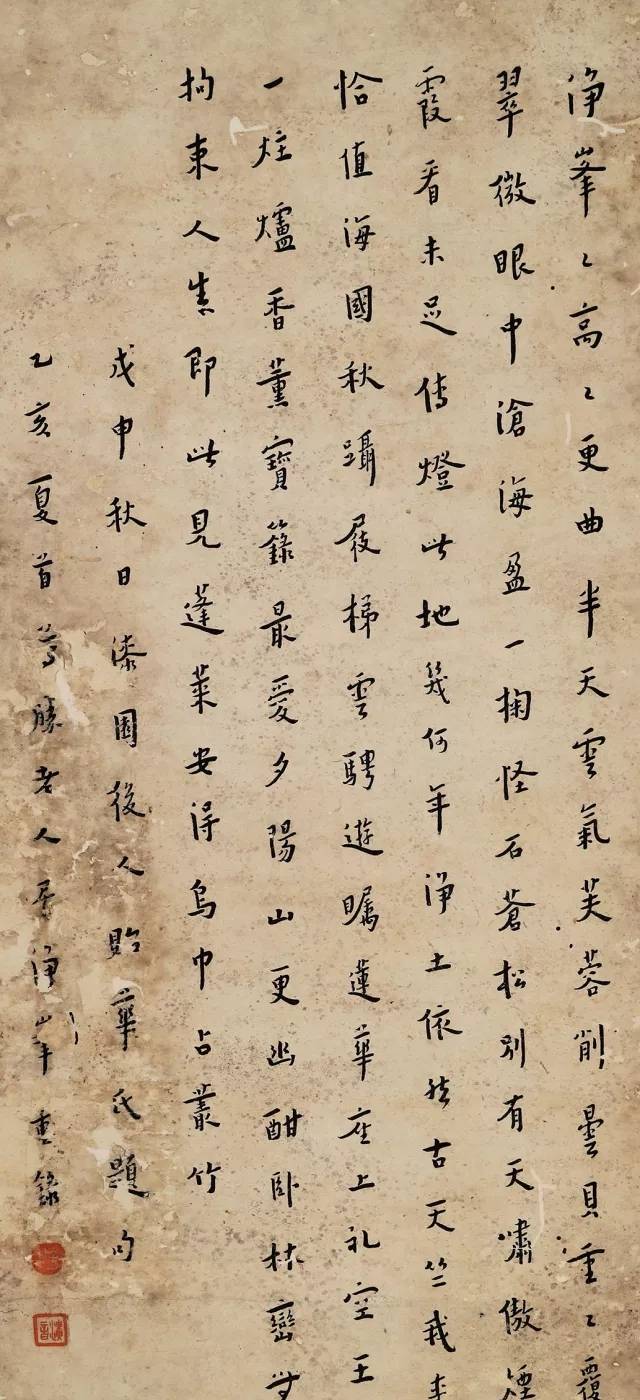 净峯々高々更曲半天雲氣芙蓉削曇貝重々覆
翠微眼中滄海盈一掬怪石蒼松别有天嘯傲煙
霞看未足傳燈此地幾何年淨土依然古天竺我来
恰值海國秋躡屐梯雲騁遊矚蓮華座上礼空王
一炷爐香薰寶籙最愛夕陽山更幽酣卧林巒
拘束人生即此見蓬萊安得烏巾占叢竹
戊申秋日漆園後人貽華氏題句
乙亥夏首尊勝老人居淨峯重錄